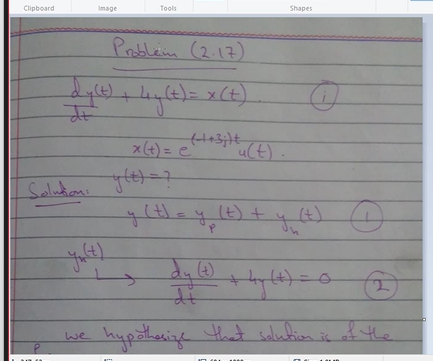 Clipboard Image Tools Shapes
Problem (2.17)
dy(t)/dt + 4y(t) = x(t). (i)
x(t) = e^(-1+3j)t u(t).
y(t) = ?
Solution:
y(t) = y_p(t) + y_h(t) (1)
y_h(t)
↳ dy(t)/dt + 4y(t) = 0 (2)
we hypothesize that solution is of the